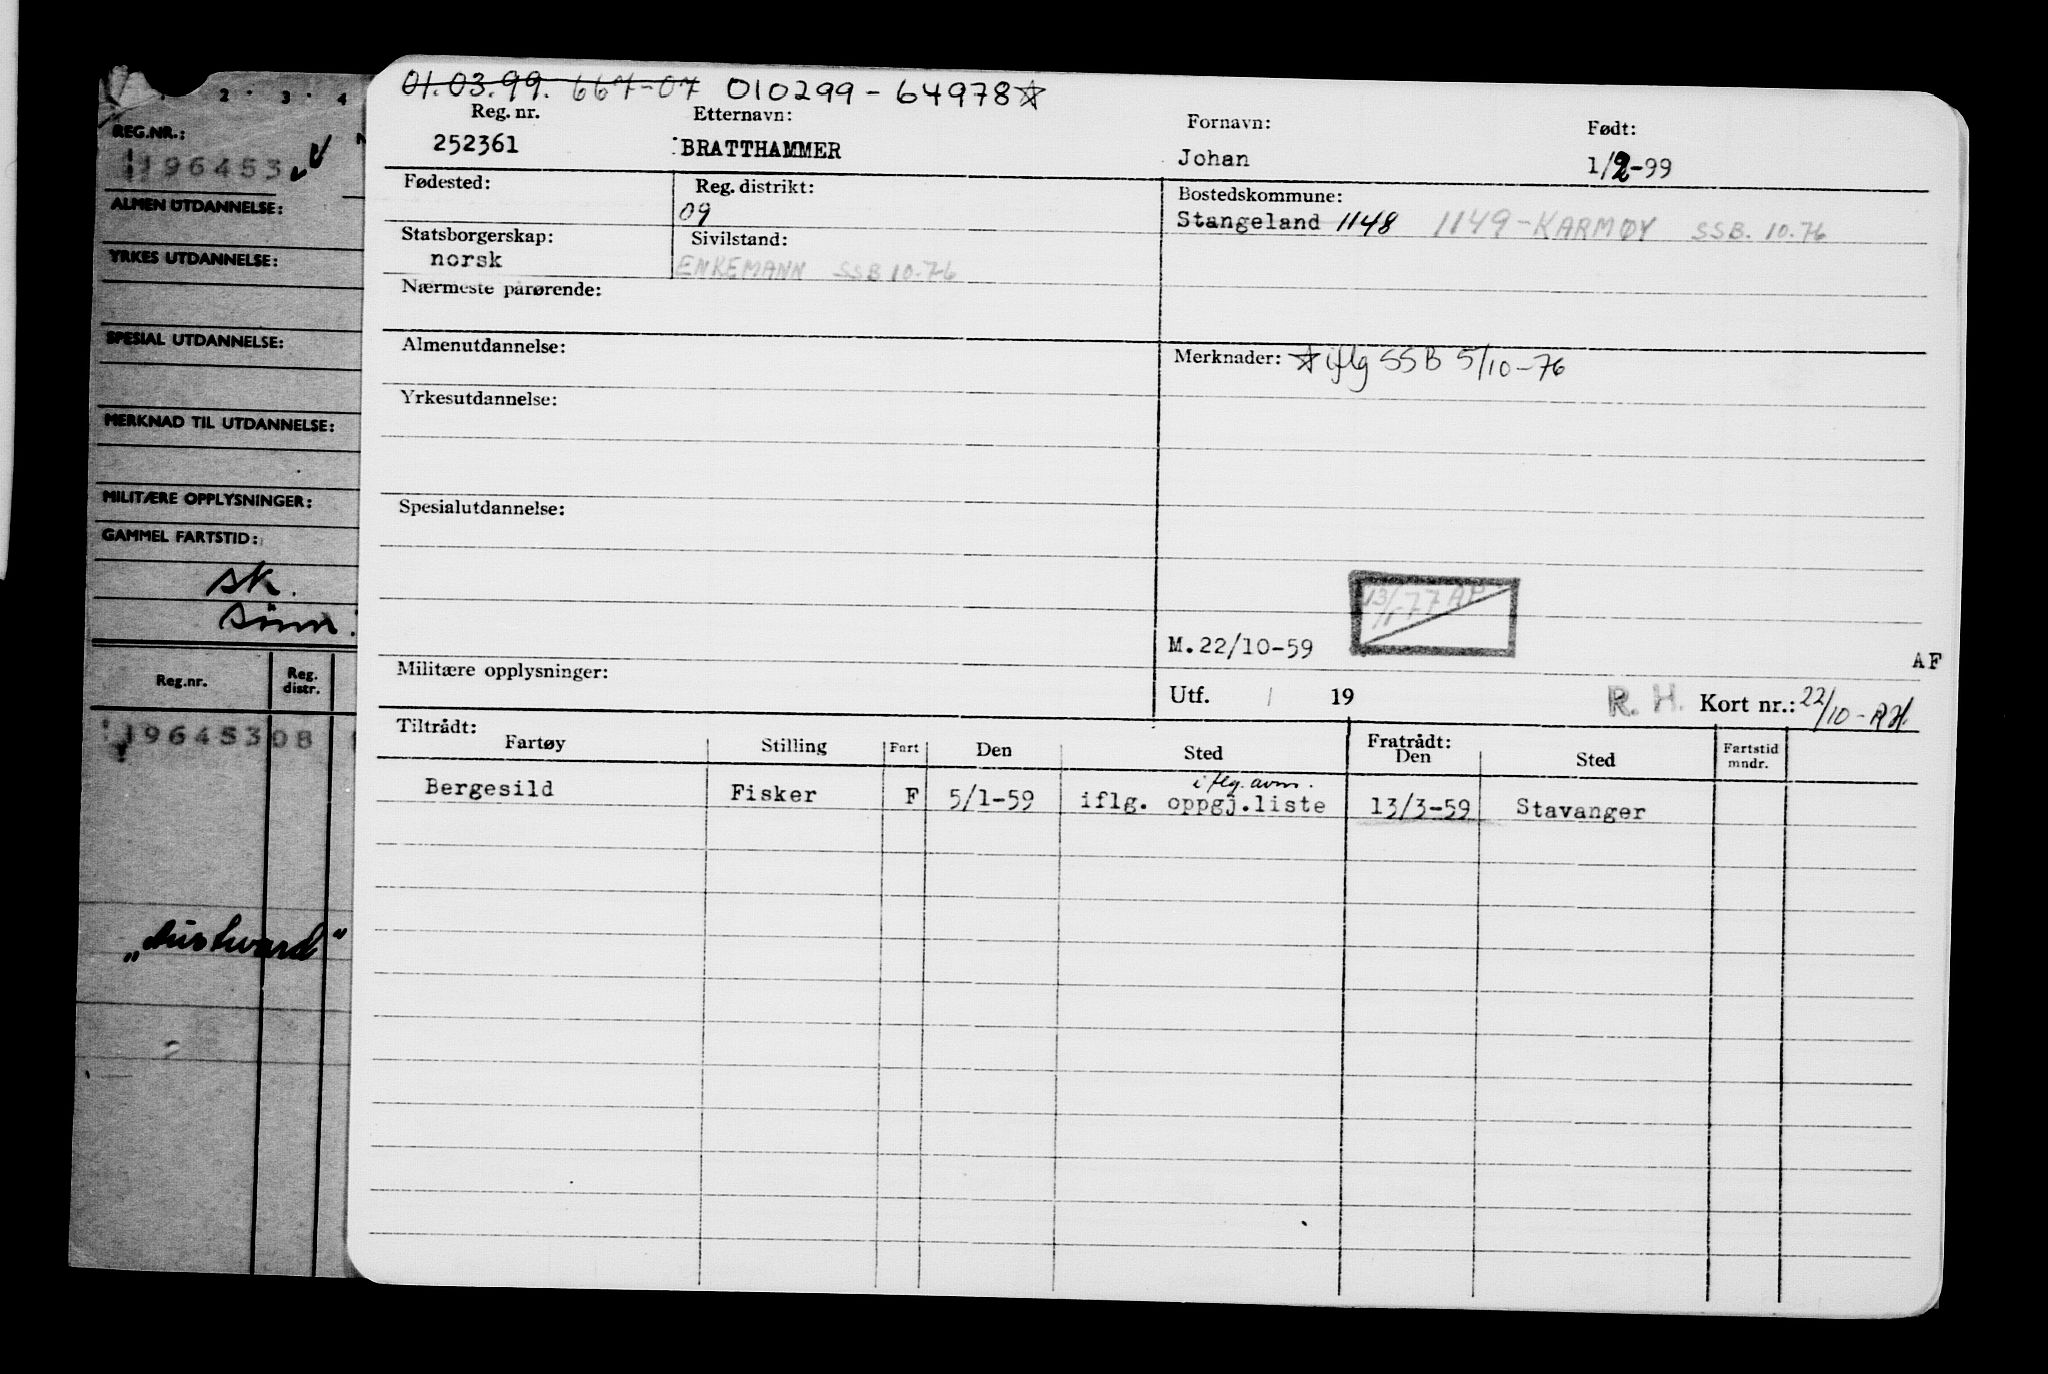 2 · 3 · 4
REG.NR.:
196453
ALMEN UTDANNELSE:
YRKES UTDANNELSE:
SPESIAL UTDANNELSE:
MERKNAD TIL UTDANNELSE:
MILITÆRE OPPLYSNINGER:
GAMMEL FARTSTID:
sk.
Reg.nr. Reg. distr.
19645308
01.03.99. 667-07 010299-64978☆
Reg. nr. Etternavn: Fornavn: Født:
252361 BRATTHAMMER Johan 1/2-99
Fødested: Reg. distrikt: Bostedskommune:
09 Stangeland 1148 1149-KARMØY SSB. 10.76
Statsborgerskap: Sivilstand:
norsk ENKEMANN SSB 10.76
Nærmeste pårørende:
Almenutdannelse: Merknader: ☆ iflg SSB 5/10-76
Yrkesutdannelse:
Spesialutdannelse:
13/1-77 AP
M.22/10-59
AF
Militære opplysninger: Utf. / 19 R. H. Kort nr.: 22/10-RH.
Tiltrådt: Fratrådt:
Fartøy Stilling Fart Den Sted Den Sted Fartstid mndr.
iflg. avm.
Bergesild Fisker F 5/1-59 iflg. oppgj.liste 13/3-59 Stavanger